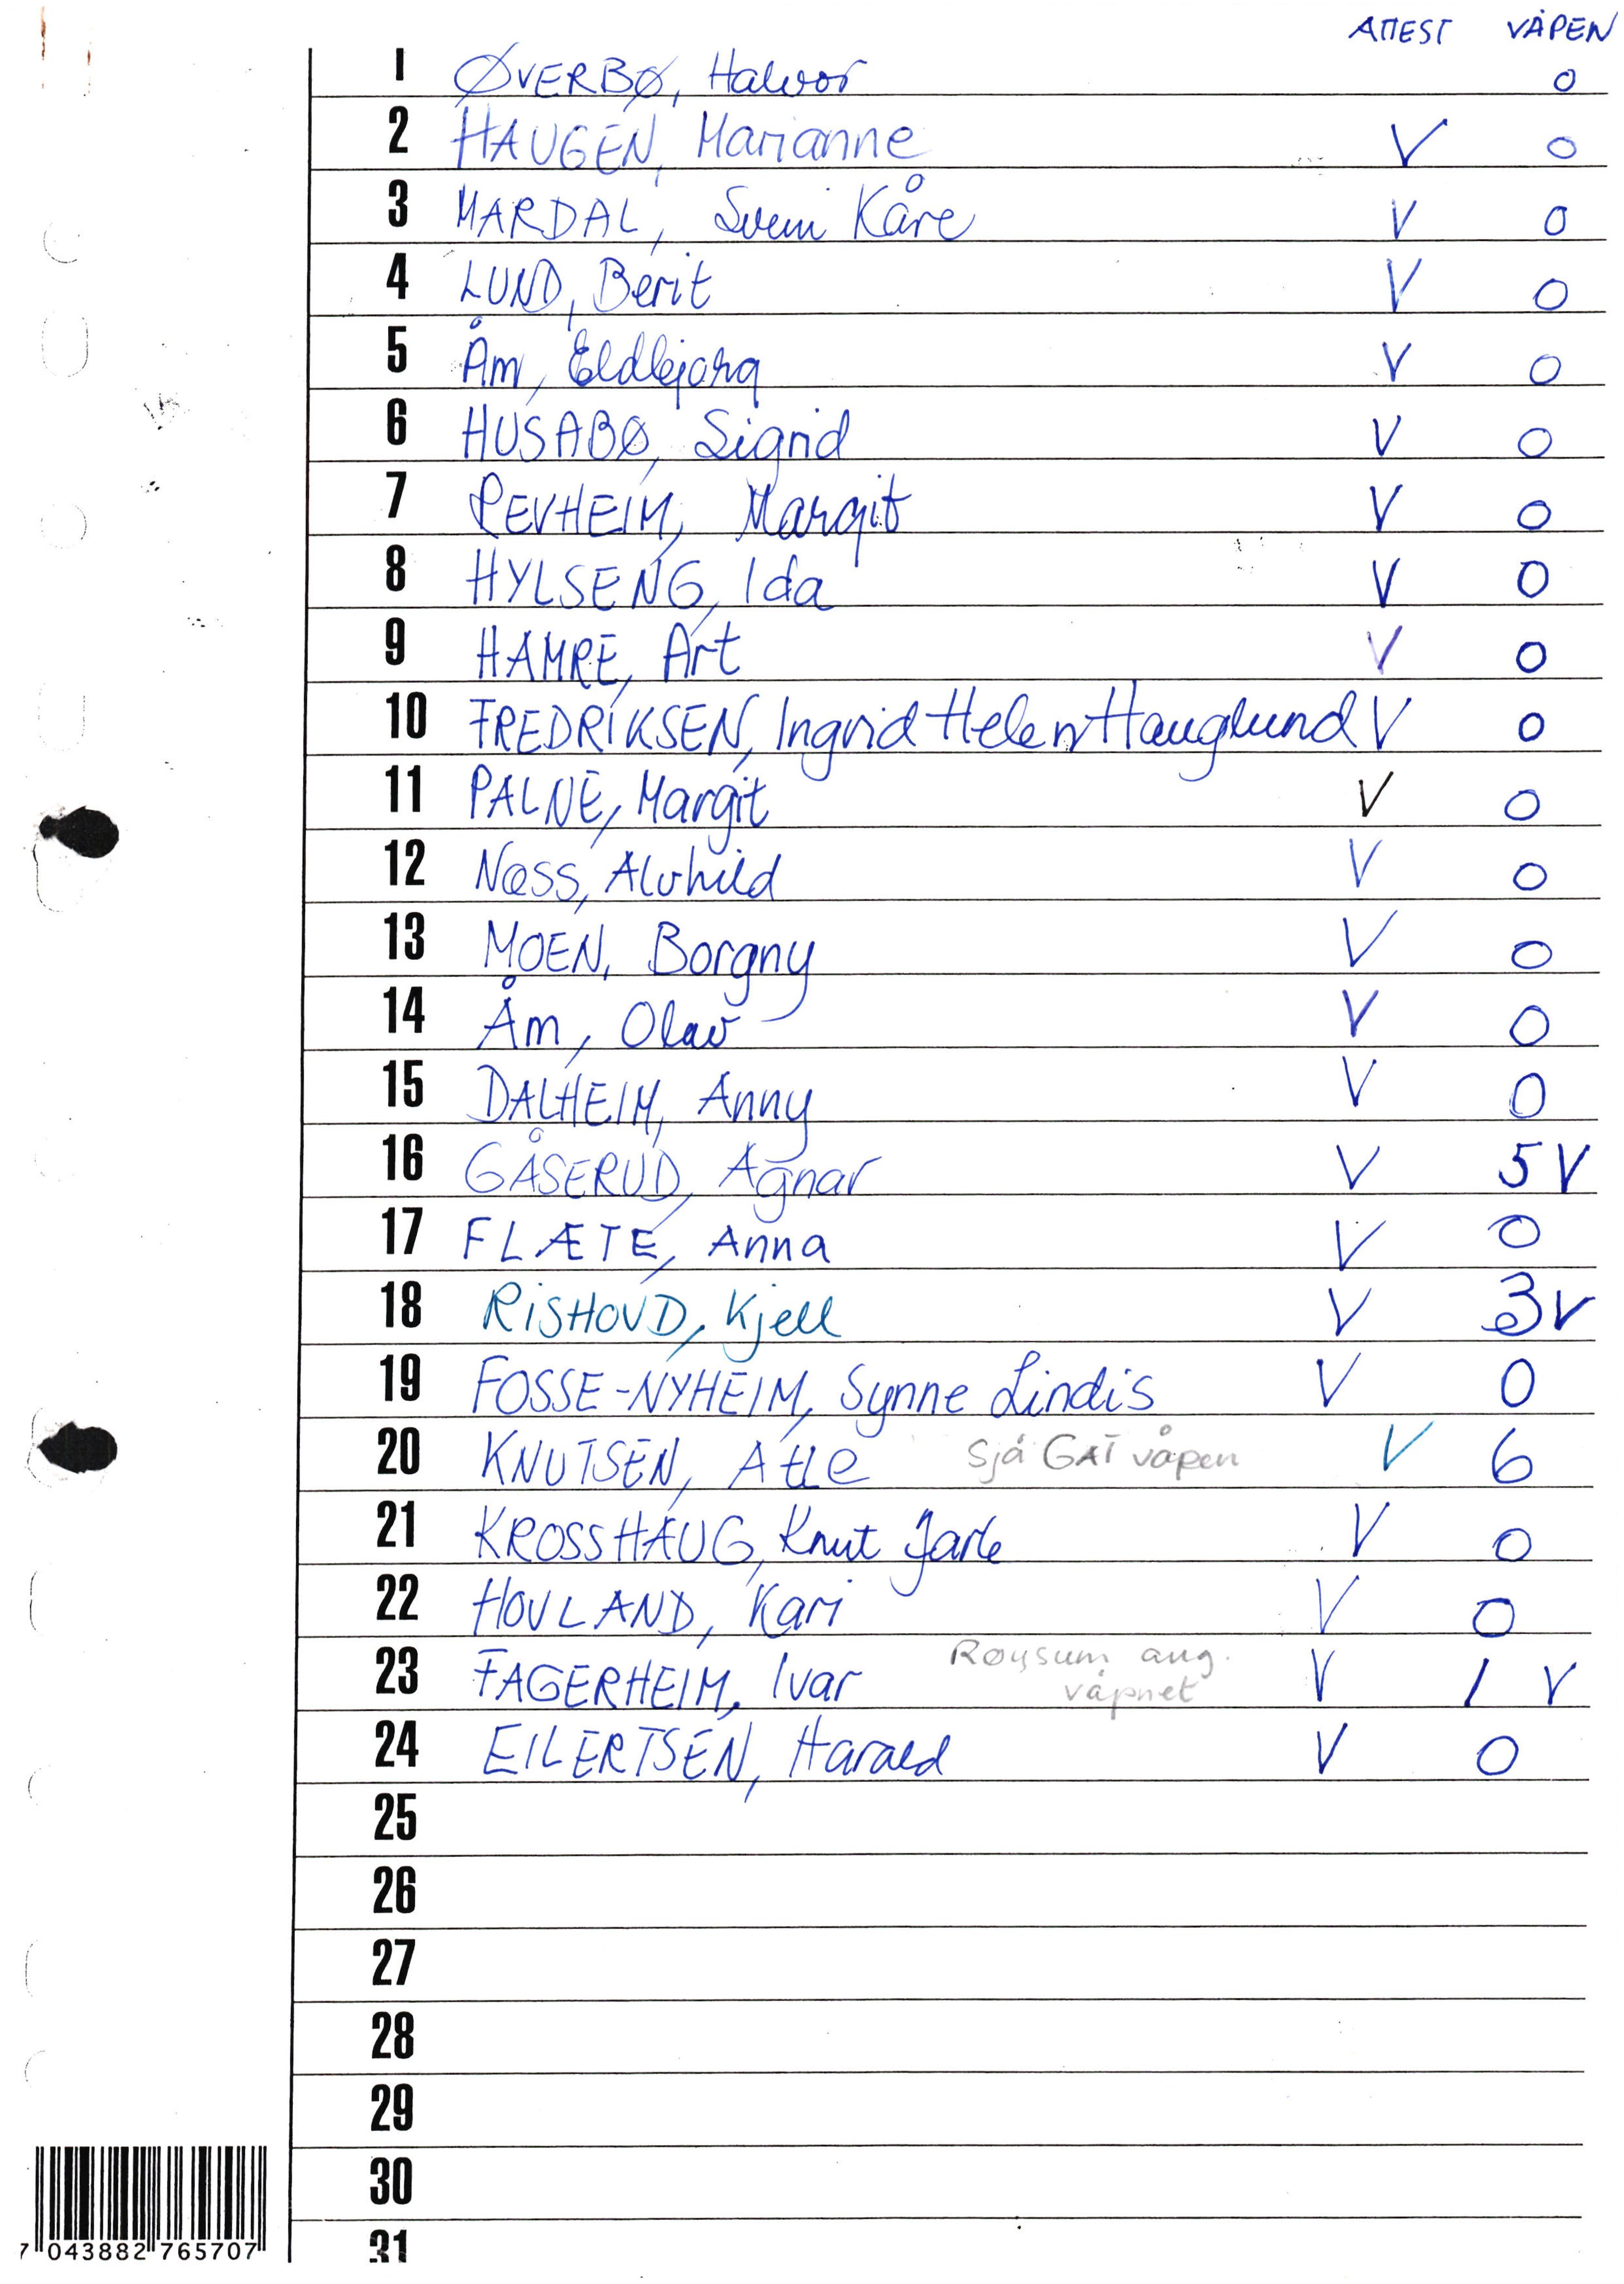 ATTEST VÅPEN
1 ØVERBØ, Halvor 0
2 HAUGEN, Marianne V 0
3 MARDAL, Svein Kåre V 0
4 LUND, Berit V 0
5 Åm, Eldbjørg V 0
6 HUSABØ, Sigrid V 0
7 PEVHEIM, Margit V 0
8 HYLSENG, Ida V 0
9 HAMRE, Art V 0
10 FREDRIKSEN, Ingrid Helen Hauglund V 0
11 PALNE, Margit V 0
12 Næss, Alvhild V 0
13 MOEN, Borgny V 0
14 Åm, Olav V 0
15 DALHEIM, Anny V 0
16 GÅSERUD, Agnar V 5 V
17 FLÆTE, Anna V 0
18 RISHOVD, Kjell V 3 V
19 FOSSE-NYHEIM, Synne Lindis V 0
20 KNUTSEN, Atle Sjå GAT våpen V 6
21 KROSSHAUG, Knut Jarle V 0
22 HOVLAND, Kari V 0
23 FAGERHEIM, Ivar Røysum ang. våpnet V 1 V
24 EILERTSEN, Harald V 0
25
26
27
28
29
30
31
7 043882 765707